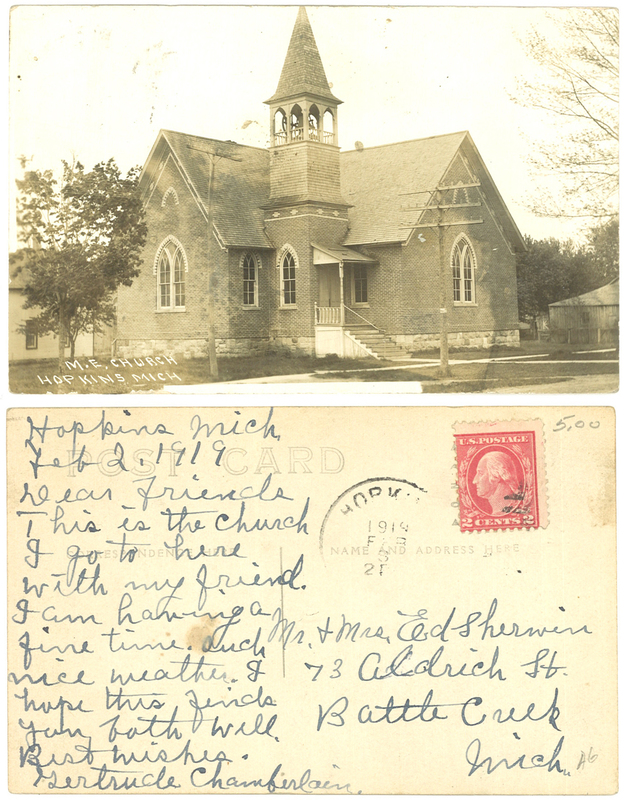 M.E. CHURCH
HOPKINS MICH
Hopkins Mich,
Feb 2, 1919
POST CARD
Dear Friends
This is the church
I go to here
with my friend.
I am having a
fine time. and
nice weather. I
hope this finds
you both well.
Best wishes.
Gertrude Chamberlain.
CORRESPONDENCE HERE
NAME AND ADDRESS HERE
HOPKI
1919
FEB
3
U.S. POSTAGE
2 CENTS 2
5.00
Mr. & Mrs. Ed Sherwin
73 Aldrich St.
Battle Creek
Mich.
A6